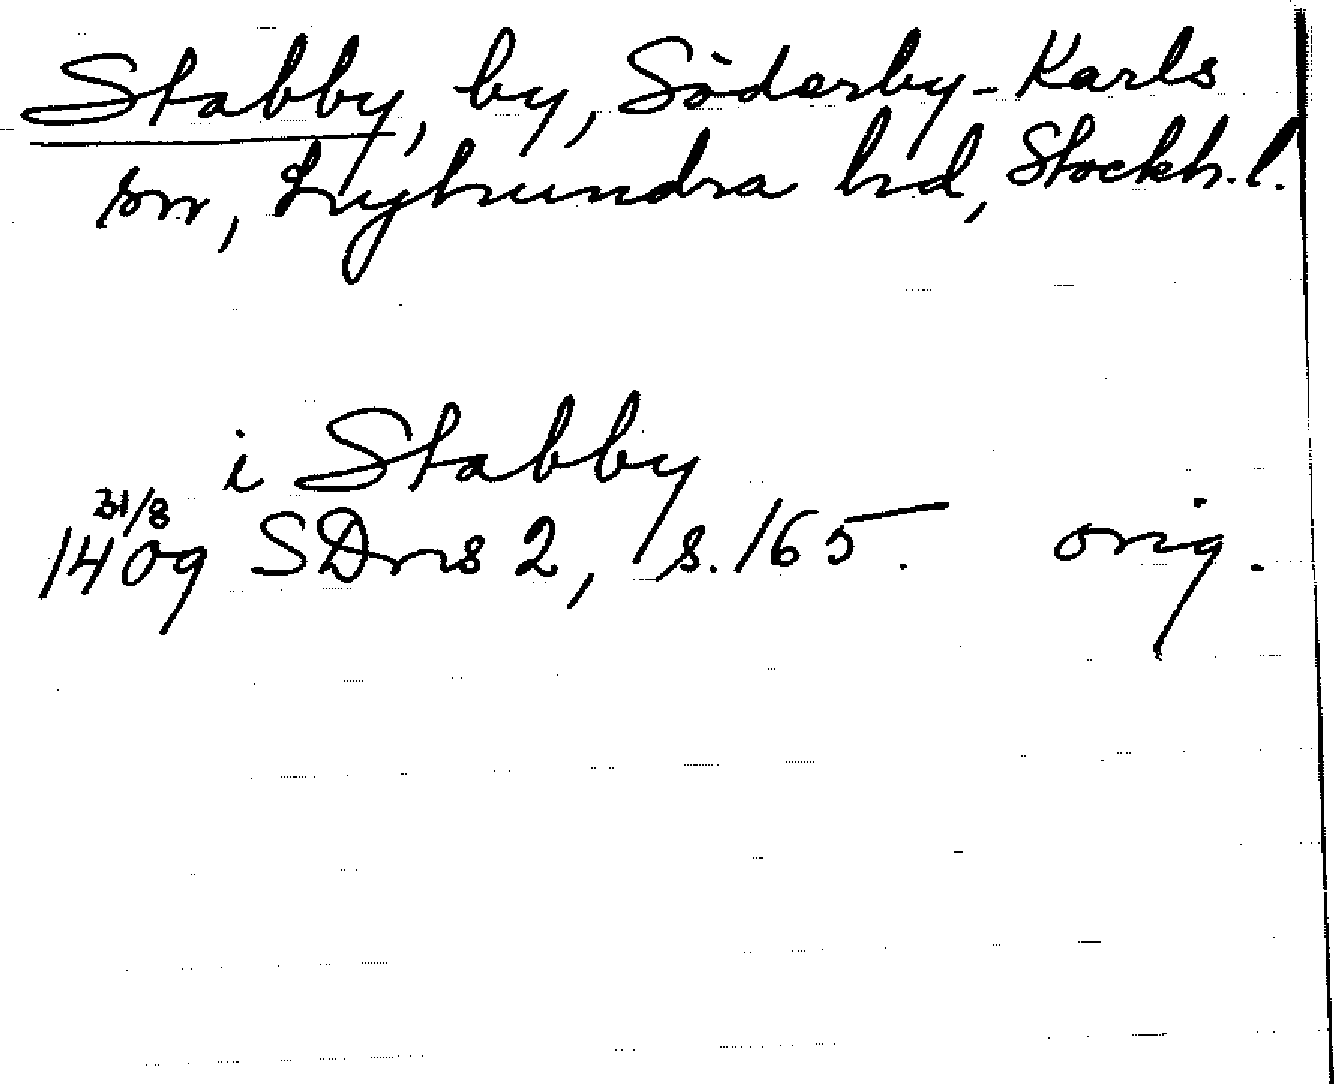 Stabby, by, Söderby-Karls
sn, Lyhundra hd, Stockh. l.
i Stabby
31/8
1409 SDns 2, s. 165. orig.